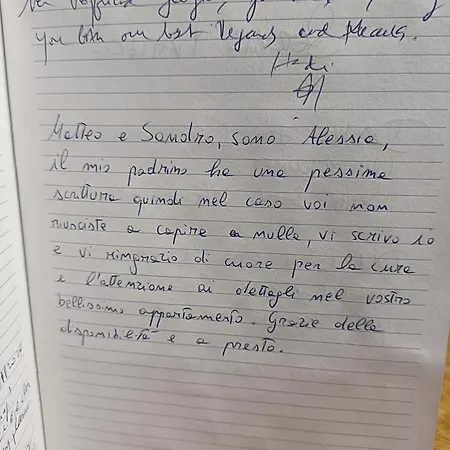 you both our best regards and
Hedi
Matteo e Sandro, sono Alessia,
il mio padrino ha una pessima
scrittura quindi nel caso voi non
riusciste a capire a nulla, vi scrivo io
e vi ringrazio di cuore per la cura
e l'attenzione ai dettagli nel vostro
bellissimo appartamento. Grazie della
disponibilità e a presto.